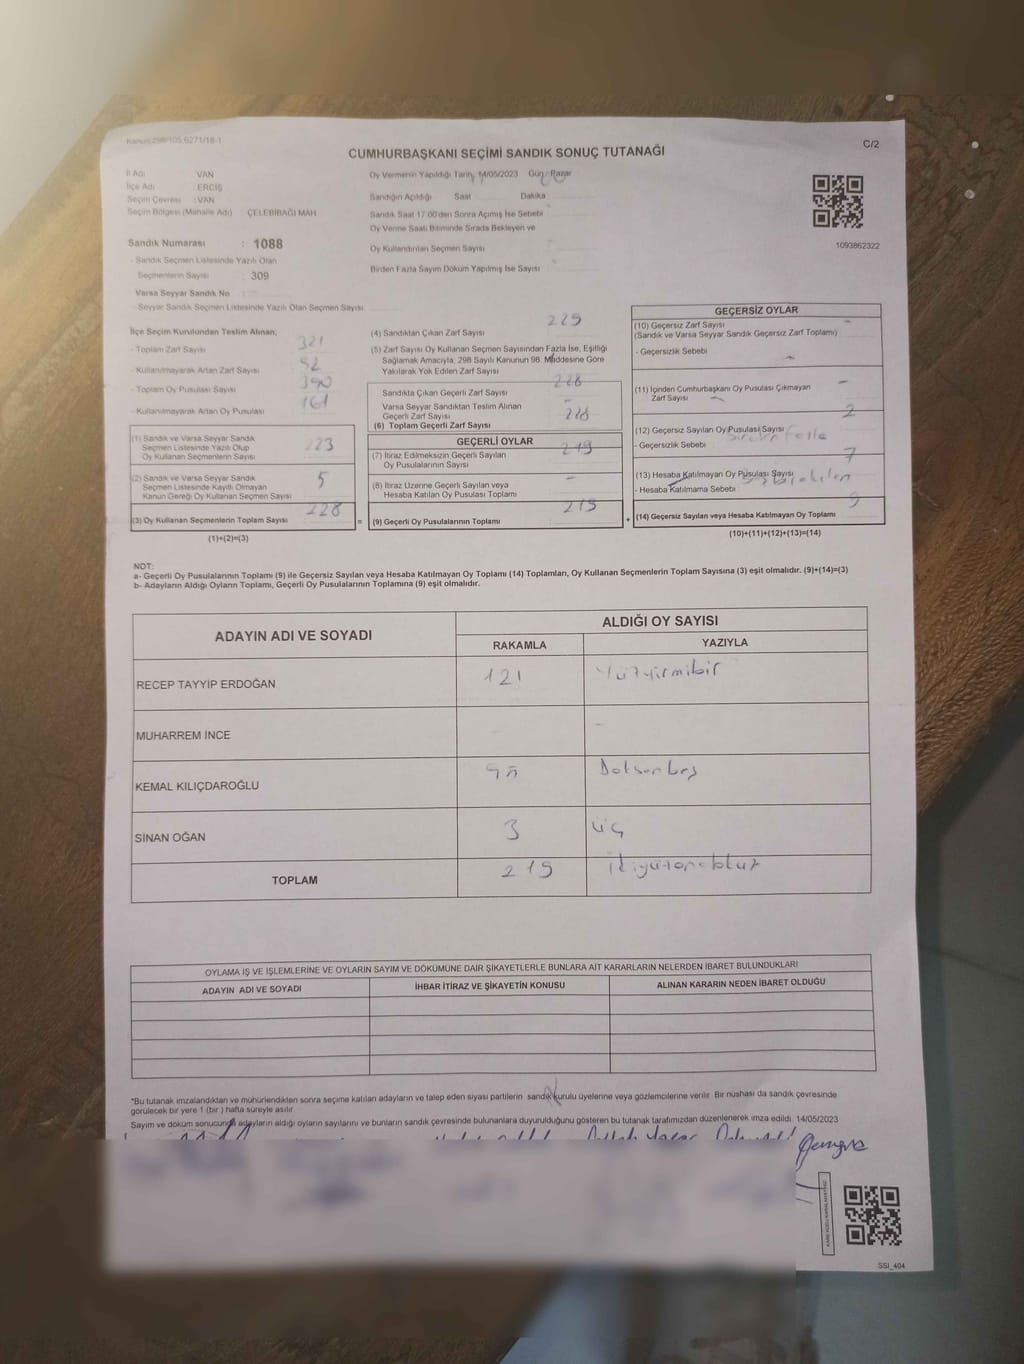 Kanun:298/105 6271/18-1
C/2
CUMHURBAŞKANI SEÇİMİ SANDIK SONUÇ TUTANAĞI
İl Adı VAN
İlçe Adı ERCİŞ
Seçim Çevresi : VAN
Seçim Bölgesi (Mahalle Adı) ÇELEBİBAĞI MAH.
Sandık Numarası : 1088
- Sandık Seçmen Listesinde Yazılı Olan
Seçmenlerin Sayısı : 309
Varsa Seyyar Sandık No :
- Seyyar Sandık Seçmen Listesinde Yazılı Olan Seçmen Sayısı
Oy Vermenin Yapıldığı Tarih 14/05/2023 Gün: Pazar
Sandığın Açıldığı Saat Dakika
Sandık Saat 17.00'den Sonra Açımış İse Sebebi
Oy Verme Saati Bitiminde Sırada Bekleyen ve
Oy Kullandırılan Seçmen Sayısı
Birden Fazla Sayım Döküm Yapılmış İse Sayısı
1093862322
İlçe Seçim Kurulundan Teslim Alınan;
- Toplam Zarf Sayısı 321
- Kullanılmayarak Artan Zarf Sayısı 92
- Toplam Oy Pusulası Sayısı 390
- Kullanılmayarak Artan Oy Pusulası 161
(1) Sandık ve Varsa Seyyar Sandık
Seçmen Listesinde Yazılı Olup
Oy Kullanan Seçmenlerin Sayısı 223
(2) Sandık ve Varsa Seyyar Sandık
Seçmen Listesinde Kayıtlı Olmayan
Kanun Gereği Oy Kullanan Seçmen Sayısı 5
(3) Oy Kullanan Seçmenlerin Toplam Sayısı 228 =
(1)+(2)=(3)
(4) Sandıktan Çıkan Zarf Sayısı 229
(5) Zarf Sayısı Oy Kullanan Seçmen Sayısından Fazla İse, Eşitliği
Sağlamak Amacıyla, 298 Sayılı Kanunun 98. Maddesine Göre
Yakılarak Yok Edilen Zarf Sayısı
Sandıkta Çıkan Geçerli Zarf Sayısı 228
Varsa Seyyar Sandıktan Teslim Alınan
Geçerli Zarf Sayısı -
(6) Toplam Geçerli Zarf Sayısı 228
GEÇERLİ OYLAR
(7) İtiraz Edilmeksizin Geçerli Sayılan
Oy Pusulalarının Sayısı 219
(8) İtiraz Üzerine Geçerli Sayılan veya
Hesaba Katılan Oy Pusulası Toplamı -
(9) Geçerli Oy Pusulalarının Toplamı 219 +
GEÇERSİZ OYLAR
(10) Geçersiz Zarf Sayısı -
(Sandık ve Varsa Seyyar Sandık Geçersiz Zarf Toplamı)
- Geçersizlik Sebebi
(11) İçinden Cumhurbaşkanı Oy Pusulası Çıkmayan
Zarf Sayısı -
(12) Geçersiz Sayılan Oy Pusulası Sayısı 2
- Geçersizlik Sebebi Birden fazla
(13) Hesaba Katılmayan Oy Pusulası Sayısı 7
- Hesaba Katılmama Sebebi
(14) Geçersiz Sayılan veya Hesaba Katılmayan Oy Toplamı 9
(10)+(11)+(12)+(13)=(14)
NOT:
a- Geçerli Oy Pusulalarının Toplamı (9) ile Geçersiz Sayılan veya Hesaba Katılmayan Oy Toplamı (14) Toplamları, Oy Kullanan Seçmenlerin Toplam Sayısına (3) eşit olmalıdır. (9)+(14)=(3)
b- Adayların Aldığı Oyların Toplamı, Geçerli Oy Pusulalarının Toplamına (9) eşit olmalıdır.
ADAYIN ADI VE SOYADI ALDIĞI OY SAYISI
RAKAMLA YAZIYLA
RECEP TAYYİP ERDOĞAN 121 Yüzyirmibir
MUHARREM İNCE - -
KEMAL KILIÇDAROĞLU 95 Doksanbeş
SİNAN OĞAN 3 üç
TOPLAM 219 ikiyüzondokuz
OYLAMA İŞ VE İŞLEMLERİNE VE OYLARIN SAYIM VE DÖKÜMÜNE DAİR ŞİKAYETLERLE BUNLARA AİT KARARLARIN NELERDEN İBARET BULUNDUKLARI
ADAYIN ADI VE SOYADI İHBAR İTİRAZ VE ŞİKAYETİN KONUSU ALINAN KARARIN NEDEN İBARET OLDUĞU
*Bu tutanak imzalandıktan ve mühürlendikten sonra seçime katılan adayların ve talep eden siyasi partilerin sandık kurulu üyelerine veya gözlemcilerine verilir. Bir nüshası da sandık çevresinde
görülecek bir yere 1 (bir ) hafta süreyle asılır.
Sayım ve döküm sonucunda adayların aldığı oyların sayılarını ve bunların sandık çevresinde bulunanlara duyurulduğunu gösteren bu tutanak tarafımızdan düzenlenerek imza edildi. 14/05/2023
SSI_404